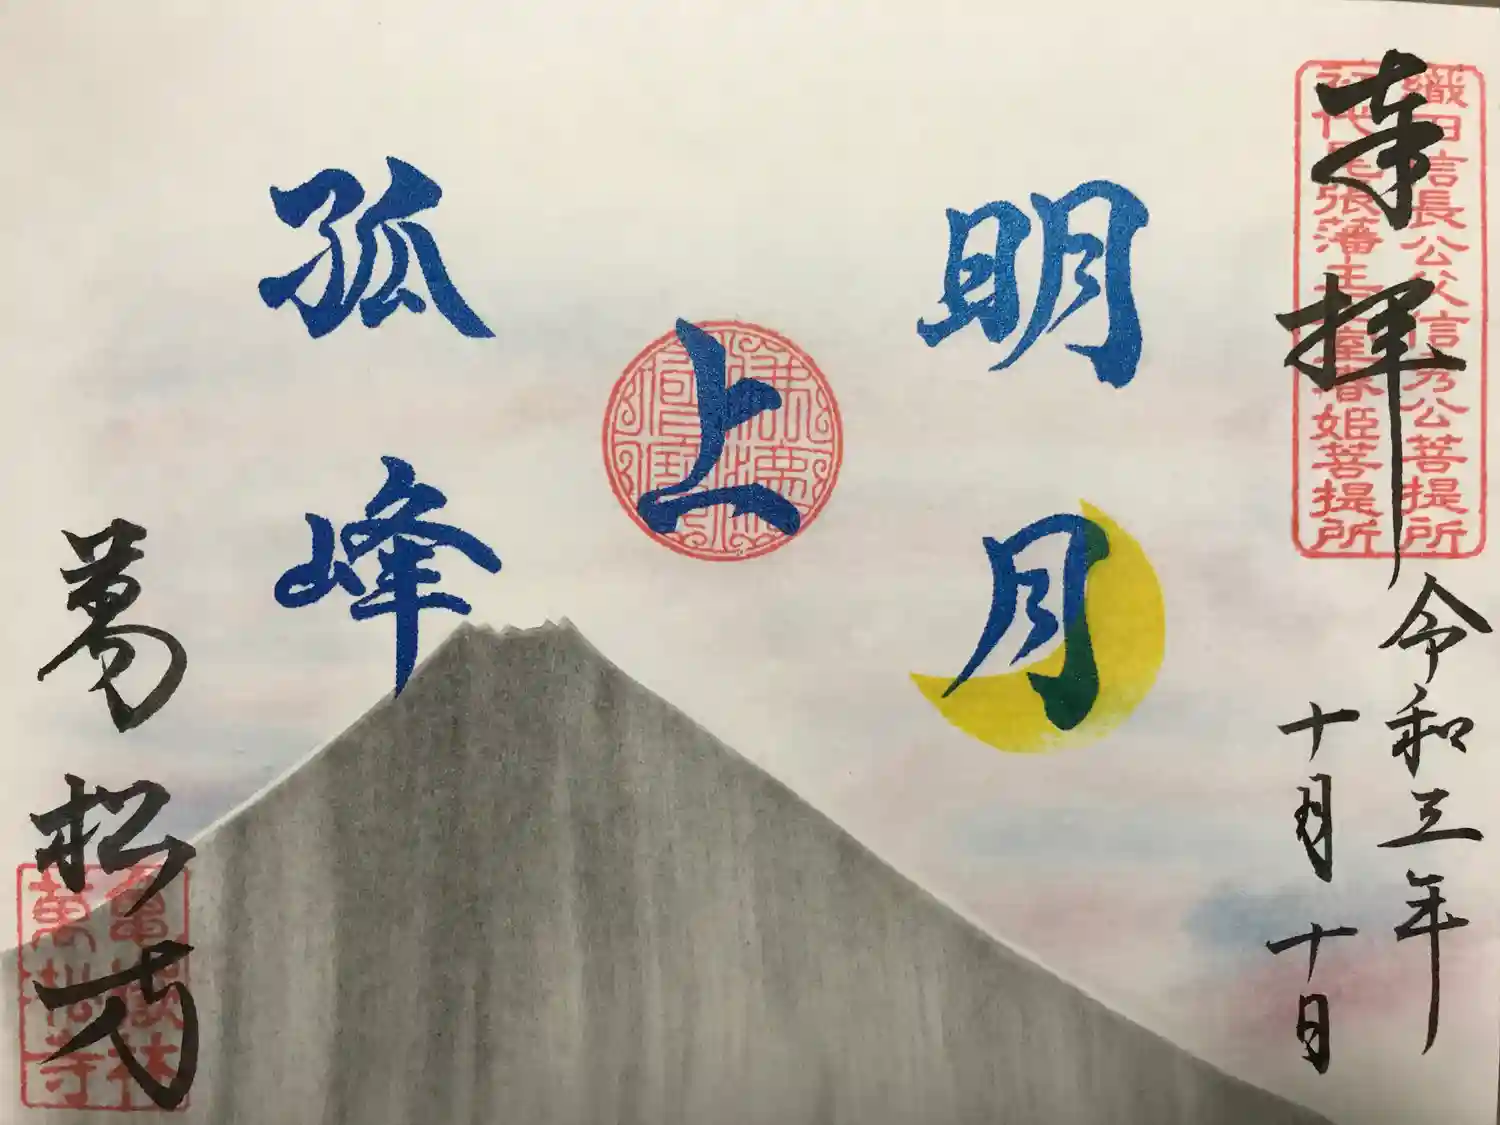 奉拝
織田信長公父信秀公菩提所
初代尾張藩主正室春姫菩提所
令和三年
十月十日
明月
上
孤峰
萬松寺
亀嶽林
萬松寺